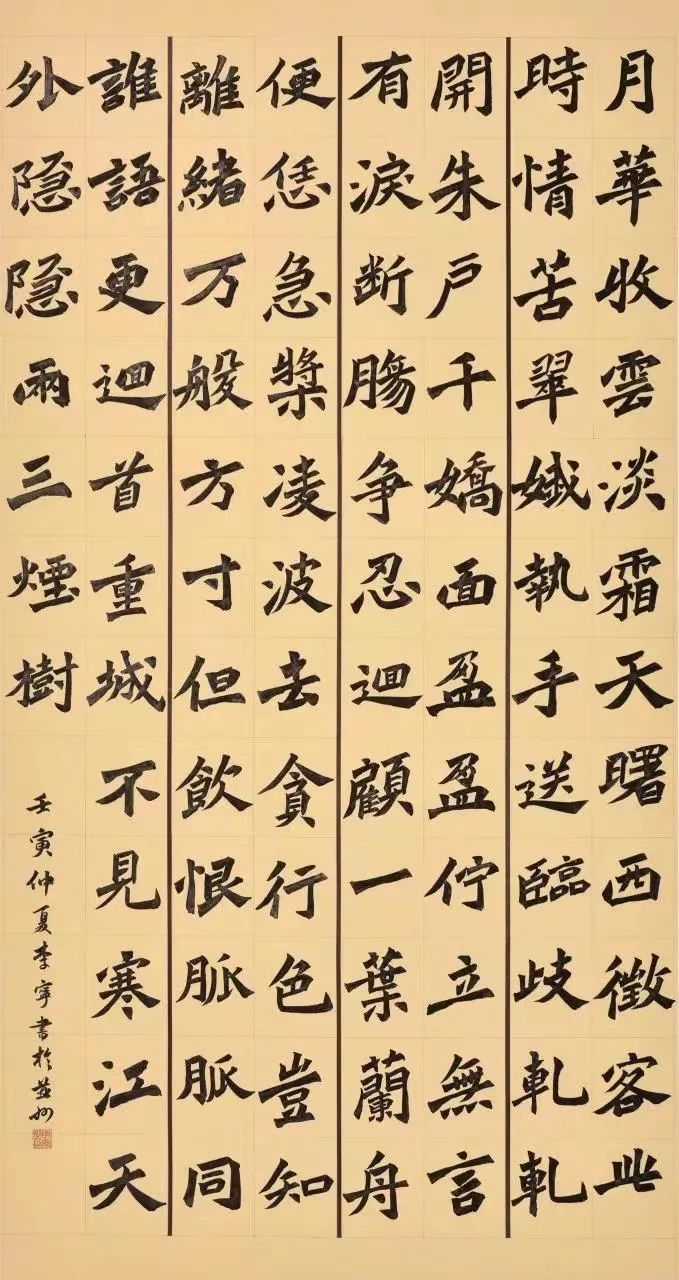 月華收雲淡霜天曙西徵客此
時情苦翠娥執手送臨歧軋軋
開朱戶千嬌面盈盈佇立無言
有淚断膓争忍迴顧一葉蘭舟
便恁急槳凌波去貪行色豈知
離緒万般方寸但飲恨脈脈同
誰語更迴首重城不見寒江天
外隐隐兩三煙樹
壬寅仲夏李寧書於益州